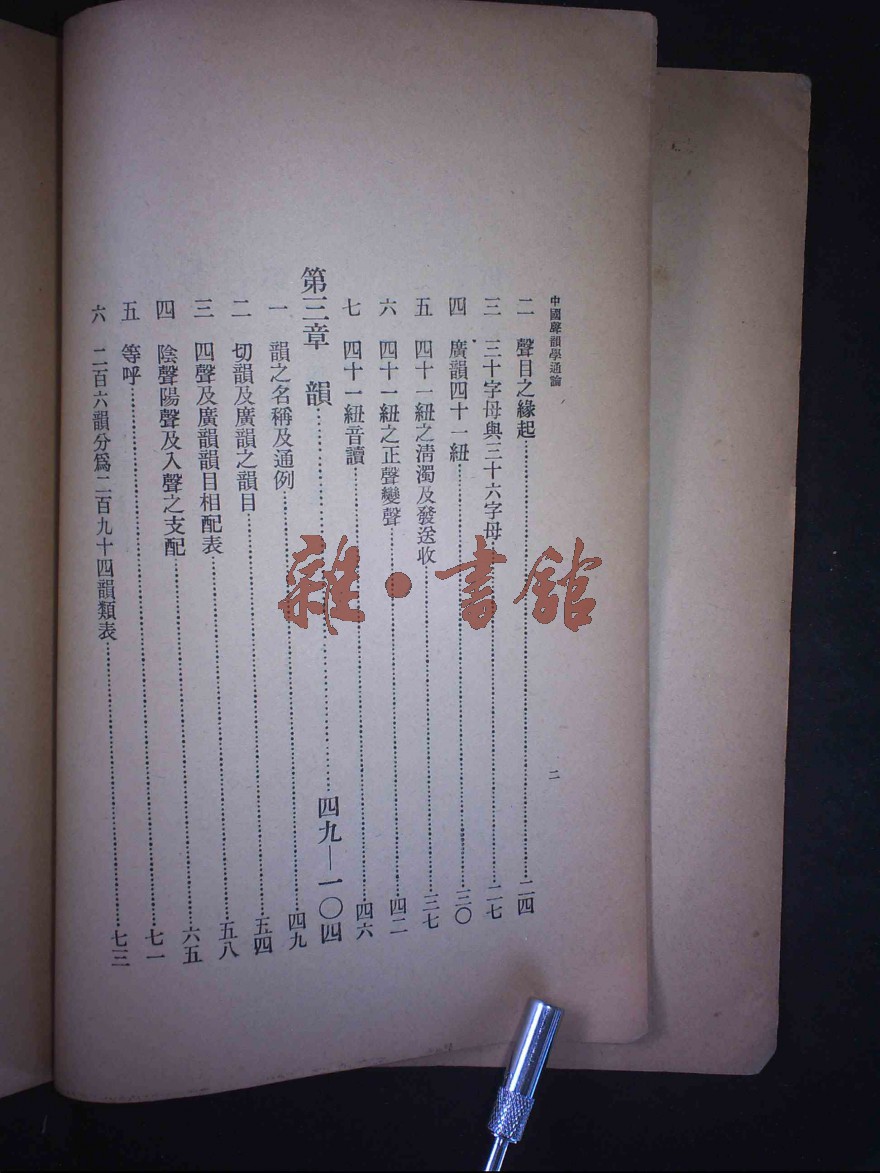 中國聲韻學通論
二
二 聲目之緣起……二四
三 三十字母與三十六字母……二七
四 廣韻四十一紐……三〇
五 四十一紐之清濁及發送收……三七
六 四十一紐之正聲變聲……四二
七 四十一紐音讀……四六
第三章 韻……四九—一〇四
一 韻之名稱及通例……四九
二 切韻及廣韻之韻目……五四
三 四聲及廣韻韻目相配表……五八
四 陰聲陽聲及入聲之支配……六五
五 等呼……七一
六 二百六韻分爲二百九十四韻類表……七三
雜·書館